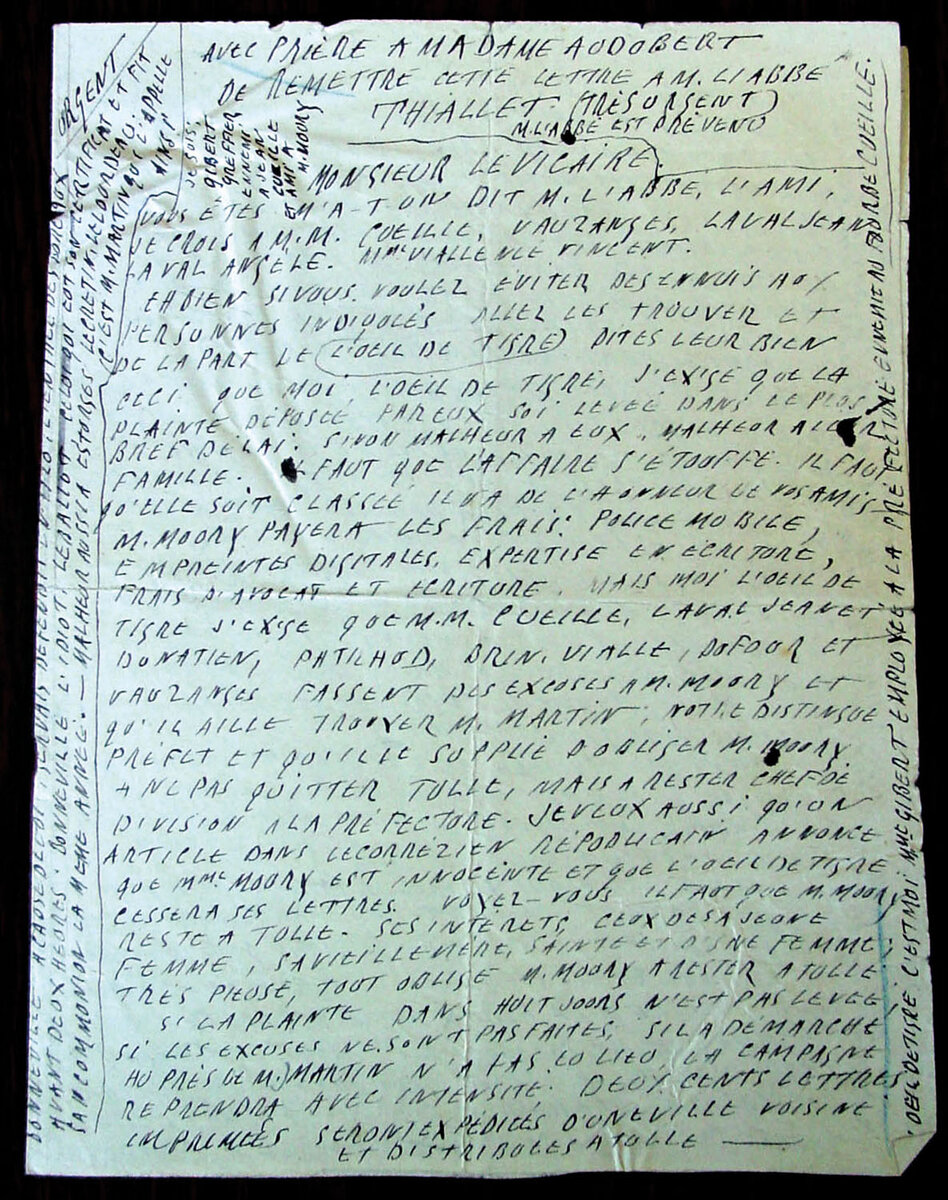 AVEC PRIÈRE A MADAME AUDOBERT
DE REMETTRE CETTE LETTRE A M. L'ABBE
THIALLET (TRÈS URGENT)
M. L'ABBÉ EST PRÉVENU
MONSIEUR LE VICAIRE.
VOUS ÊTES M'A-T-ON DIT M. L'ABBE, L'AMI,
JE CROIS A M.M. CUEILLE, VAURZANGES, LAVAL JEAN
LAVAL ANGÈLE. MME VIALLE NÉE VINCENT.
EH BIEN SI VOUS VOULEZ ÉVITER DES ENNUIS AUX
PERSONNES INDIQUÉES ALLEZ LES TROUVER ET
DE LA PART DE (L'OEIL DE TIGRE) DITES LEUR BIEN
CECI QUE MOI, L'OEIL DE TIGRE, J'EXIGE QUE LA
PLAINTE DÉPOSÉE PAR EUX SOI LEVÉE DANS LE PLUS
BREF DELAI. SINON MALHEUR A EUX, MALHEUR A LEUR
FAMILLE. IL FAUT QUE L'AFFAIRE S'ÉTOUFFE. IL FAUT
QU'ELLE SOIT CLASSÉE IL Y A DE L'HONNEUR DE VOS AMIS
M. MOURY PAYERA LES FRAIS: POLICE MOBILE,
EMPREINTES DIGITALES, EXPERTISE EN ÉCRITURE,
FRAIS D'AVOCAT ET ECRITURE. MAIS MOI L'OEIL DE
TIGRE J'EXIGE QUE M.M. CUEILLE, LAVAL JEAN ET
DONATIEN, PATICHUD, BRIN, VIALLE, DUFOUR ET
VAURZANGES FASSENT DES EXCUSES A M. MOURY ET
QU'IL AILLE TROUVER M. MARTIN, NOTRE DISTINGUE
PRÉFET ET QU'IL LE SUPPLIE D'OBLIGER M. MOURY
A NE PAS QUITTER TULLE, MAIS A RESTER CHEF DE
DIVISION A LA PRÉFECTURE. JE VEUX AUSSI QU'UN
ARTICLE DANS LE CORREZIEN RÉPUBLICAIN ANNONCE
QUE MME MOURY EST INNOCENTE ET QUE L'OEIL DE TIGRE
CESSERA SES LETTRES. VOYEZ-VOUS IL FAUT QUE M. MOURY
RESTE A TULLE. SES INTÉRETS, CEUX DE SA JEUNE
FEMME, SA VIEILLE MÈRE, SAINTE ET DIGNE FEMME,
TRÈS PIEUSE, TOUT OBLIGE M. MOURY A RESTER A TULLE
SI LA PLAINTE DANS HUIT JOURS N'EST PAS LEVÉE
SI LES EXCUSES NE SONT PAS FAITES, SI LA DÉMARCHE
AUPRÈS DE M. MARTIN N'A PAS EU LIEU LA CAMPAGNE
REPRENDRA AVEC INTENSITÉ. DEUX CENTS LETTRES
IMPRIMÉES SERONT EXPÉDIÉES D'UNE VILLE VOISINE
ET DISTRIBUÉES A TULLE
URGENT
JE SUIS
GIBERT
GREFFIER
ENNEMI
A JEAN
CUEILLE
ET AMI A
M. MOURY
AVANT DEUX HEURES. BONNEVILLE L'IDIOT.
SA COMMUNION LA MEME ANNÉE. — MALHEUR AUSSI A ESTORGES LE CRETIN, LE LOURDEAU.
C'EST M. MARTIN QUI L'APPELLE
AINSI
OEIL DE TIGRE C'EST MOI MME GIBERT EMPLOYÉE A LA PRÉFECTURE ENNEMIE AU FOURBE CUEILLE.